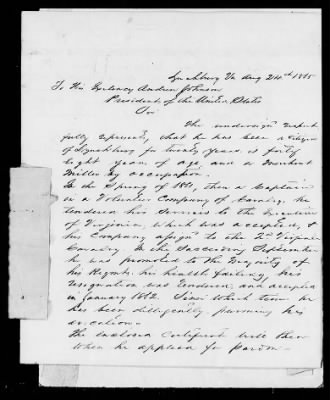 Lynchburg Va Aug 2nd 1865
To His Excelency Andrew Johnson
President of the United States
Sir
The undersigned respect
fully represents, that he has been a Citizen
of Lynchburg for twenty years is forty
Eight years of age and a Merchant
Miller by occupation.
In the Spring of 1861, then a Captain
in a Volunteer Company of Cavalry, he
tendered his Services to the Executive
of Virginia, which was accepted, &
his Company assigned to the 2nd Virginia
Cavalry. In the Succeeding September
he was promoted to the Majority of
his Regmt. his health failing, his
resignation was tendered, and accepted
in January 1862. Since which time he
has been diligently pursuing his
avocation.
The enclosed Certificate will show
When he applied for pardon.